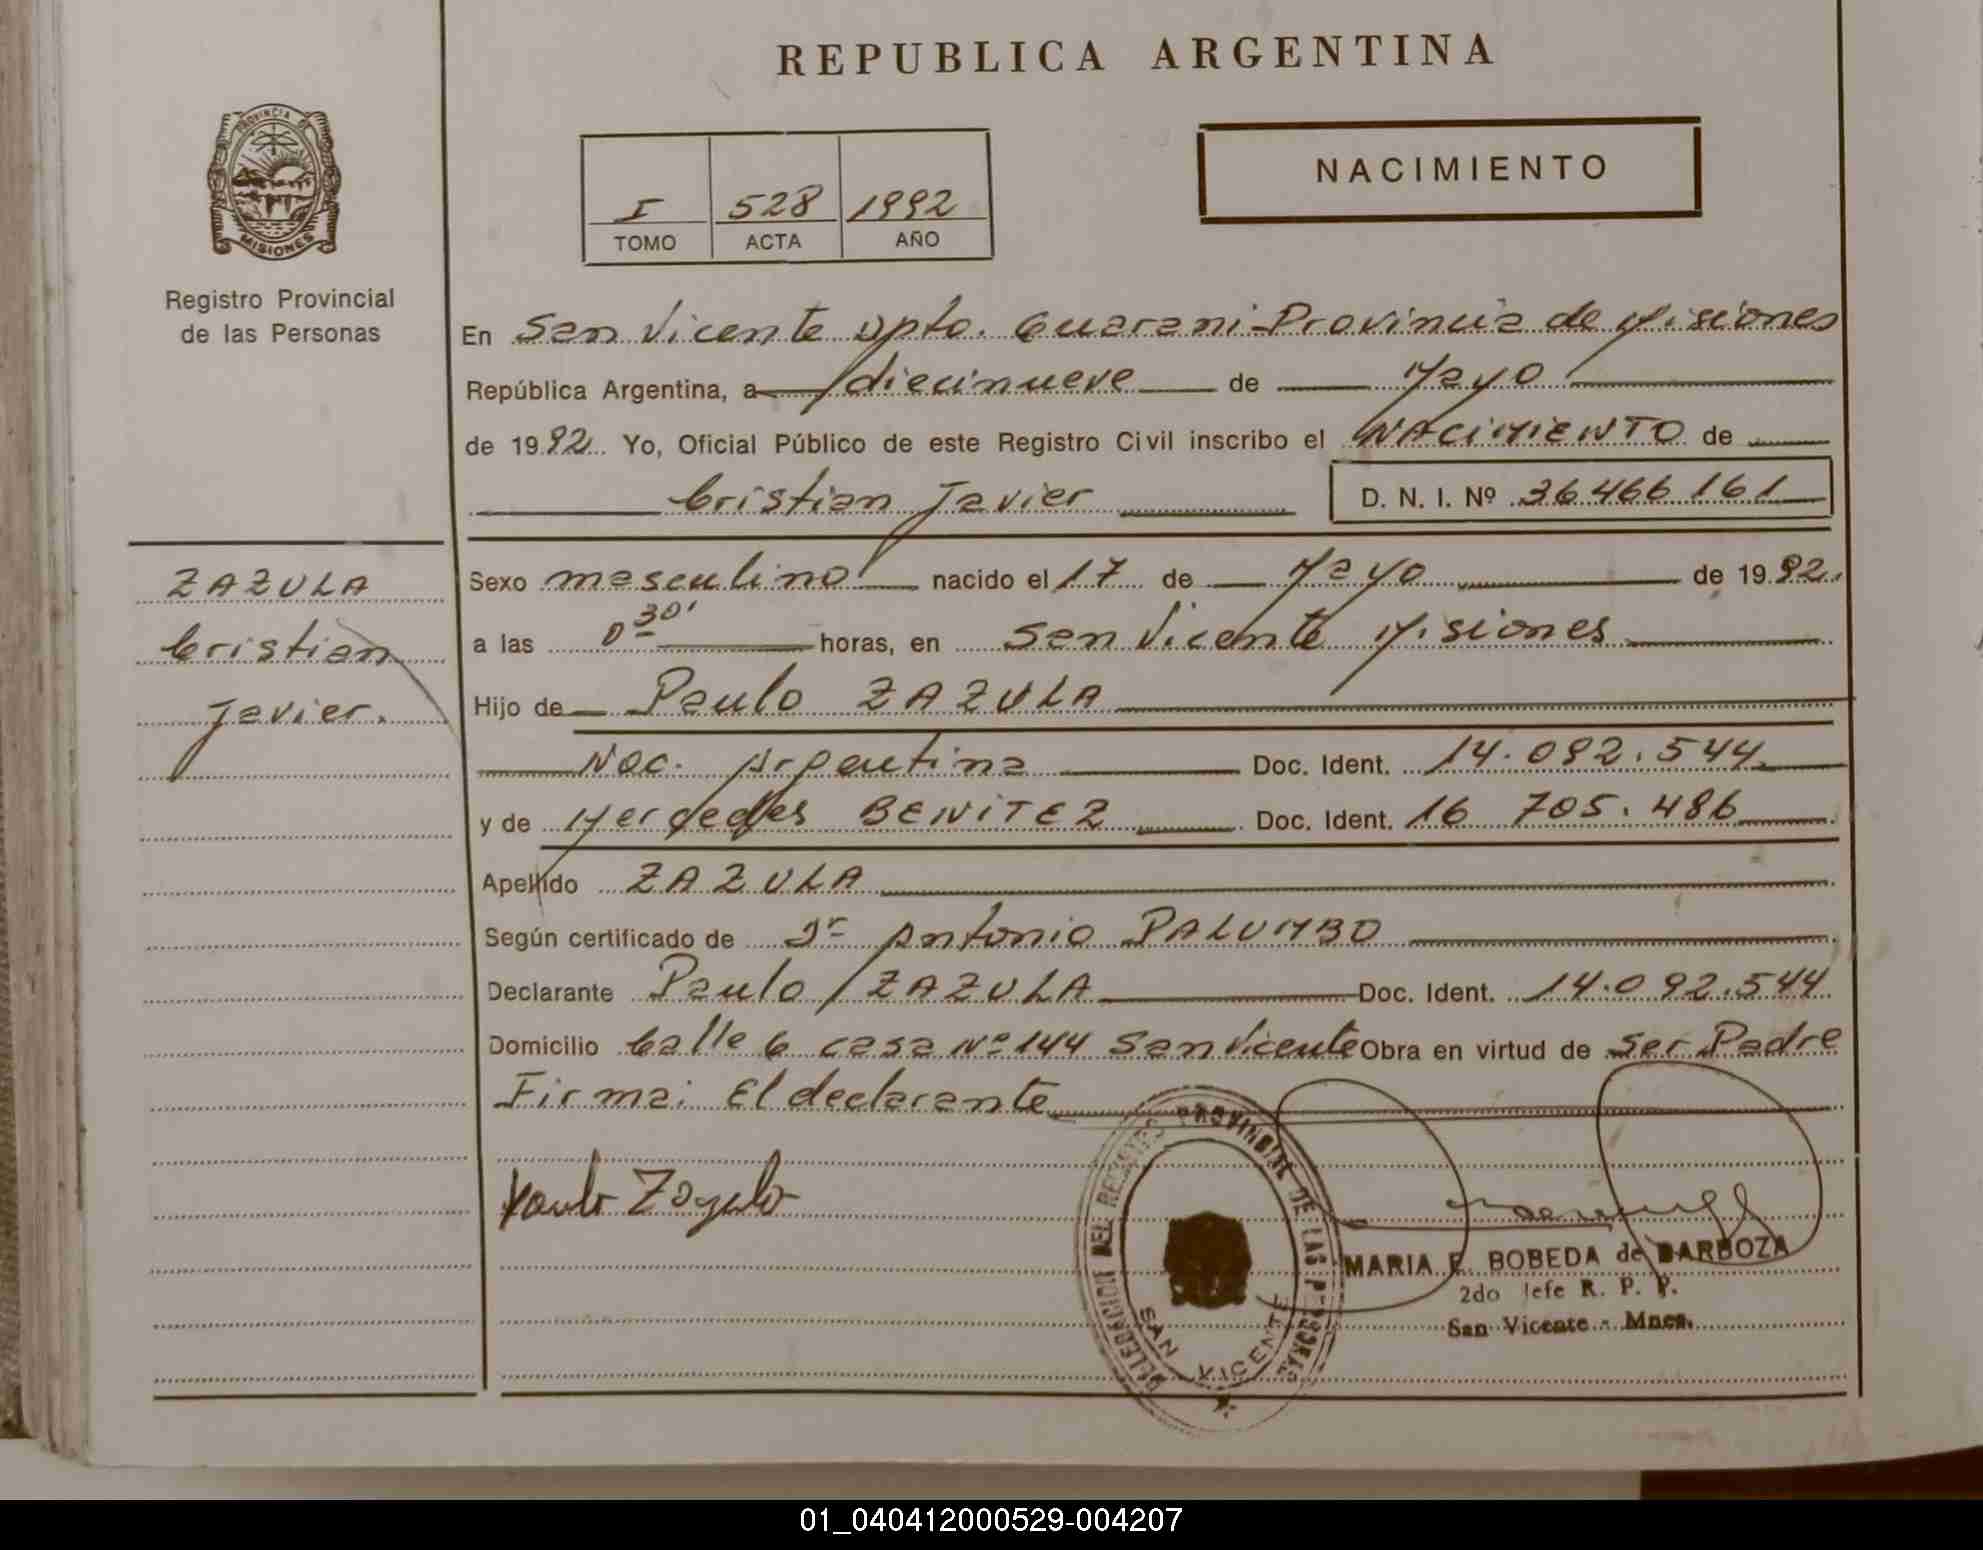 REPUBLICA ARGENTINA
PROVINCIA DE
MISIONES
Registro Provincial
de las Personas
I 528 1992
TOMO ACTA AÑO
NACIMIENTO
En San Vicente Dpto. Guarani-Provincia de Misiones
República Argentina, a diecinueve de Mayo
de 1992. Yo, Oficial Público de este Registro Civil inscribo el NACIMIENTO de
Cristian Javier D. N. I. Nº 36466161
ZAZULA
Cristian
Javier.
Sexo masculino nacido el 17 de Mayo de 1992.
a las 0 30' horas, en San Vicente Misiones
Hijo de Paulo ZAZULA
Nac. Argentina Doc. Ident. 14.092.544
y de Mercedes BENITEZ Doc. Ident. 16 705.486
Apellido ZAZULA
Según certificado de Dr Antonio PALUMBO
Declarante Paulo ZAZULA Doc. Ident. 14.092.544
Domicilio Calle 6 casa Nº 144 San Vicente Obra en virtud de ser Padre
Firma: El declarante
Paulo Zazula
DELEGACION DEL REGISTRO PROVINCIAL DE LAS PERSONAS
SAN VICENTE
MARIA E. BOBEDA de BARBOZA
2do Jefe R. P. P.
San Vicente - Mnes.
01_040412000529-004207